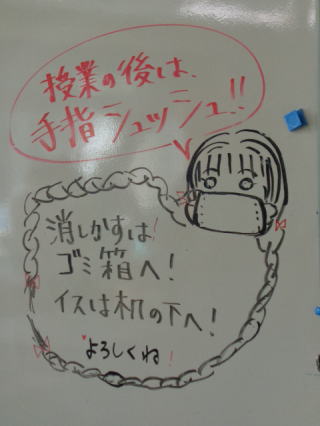 授業の後は、
手指シュッシュ!!
消しかすは!
ゴミ箱へ!
イスは机の下へ!
よろしくね!